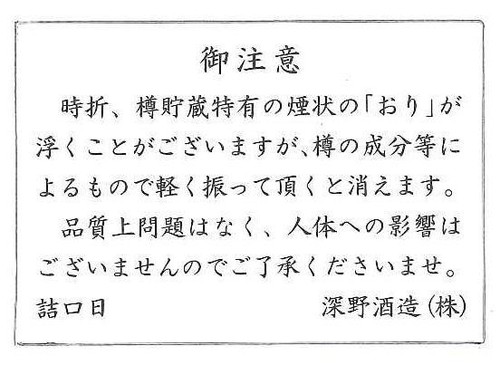 御注意
時折、樽貯蔵特有の煙状の「おり」が
浮くことがございますが、樽の成分等に
よるもので軽く振って頂くと消えます。
品質上問題はなく、人体への影響は
ございませんのでご了承くださいませ。
詰口日 深野酒造(株)